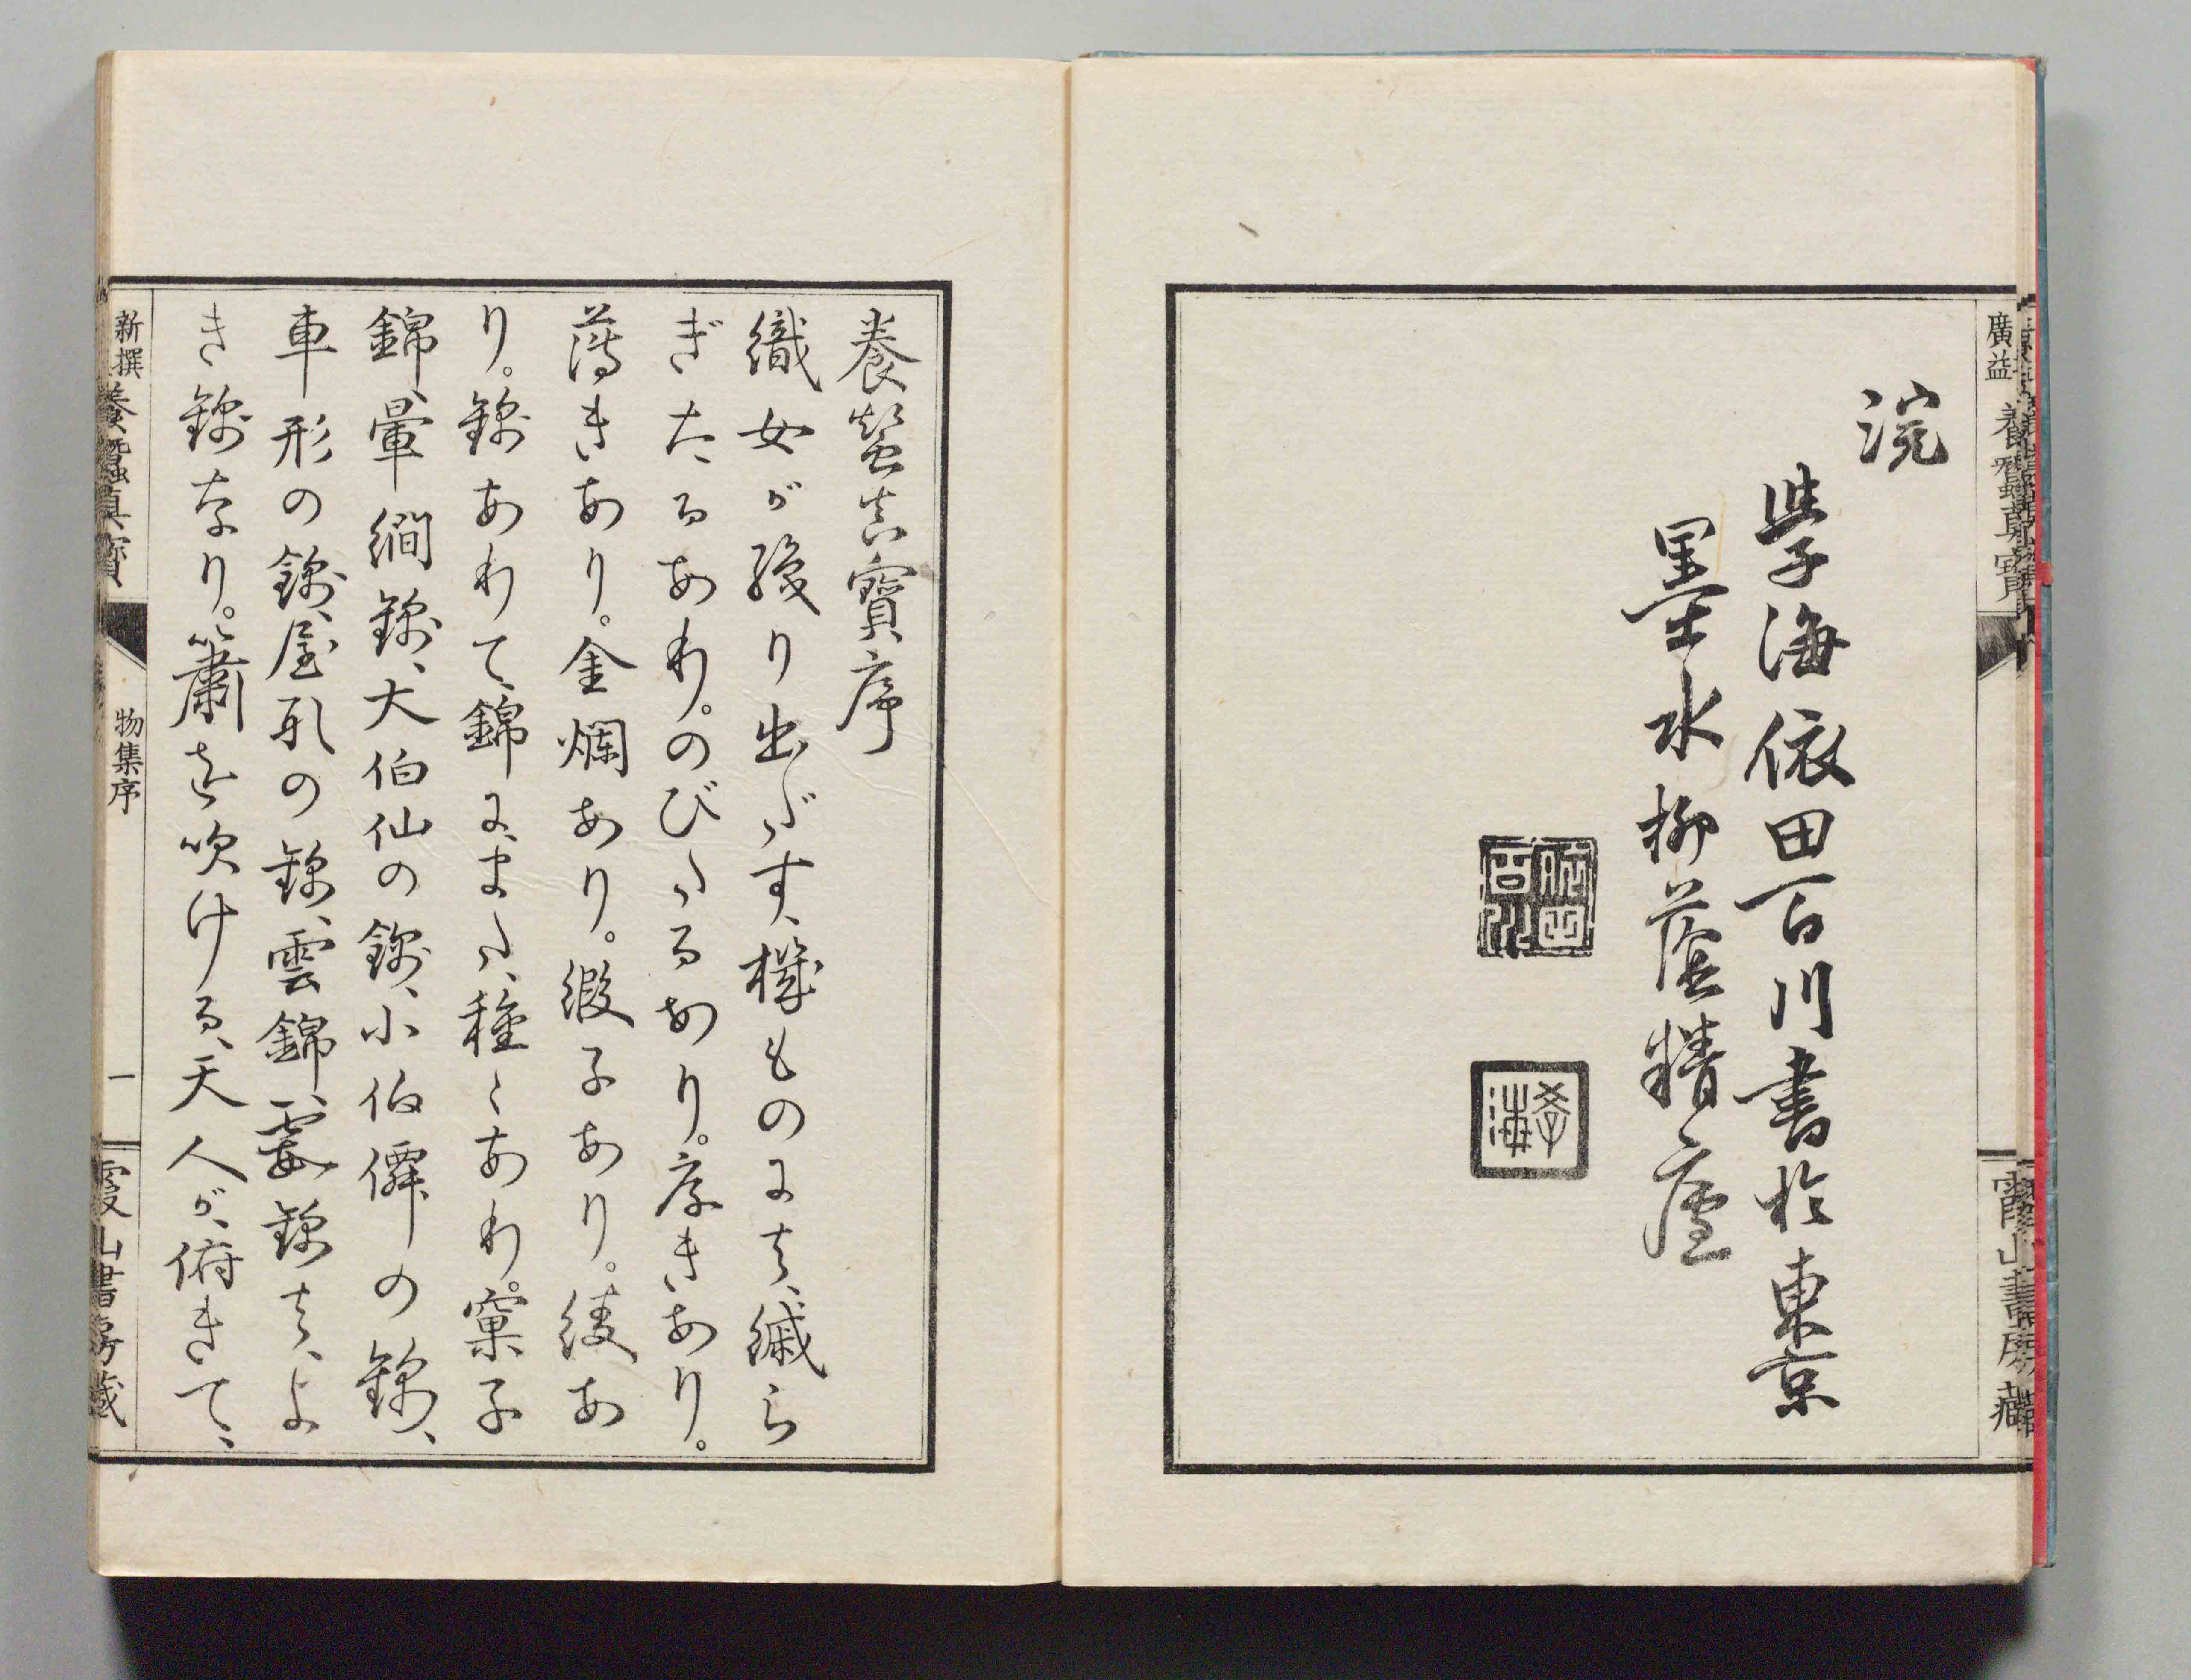 廣益 養蠶真寶
霞山書房藏
浣
學海依田百川書於東京
墨水柳蔭精廬
學海
養蠶真寶序
織女が織り出だす、機ものには、縅ら
ぎたるあり。のびたるあり。厚きあり。
薄きあり。金襴あり。緞子あり。綾あ
り。錦ありて、錦に、また、種〻あり。窠子
錦、暈繝錦、大伯仙の錦、小伯僊の錦、
車形の錦、屋形の錦、雲錦、霞錦は、よ
き錦なり。簫を吹ける、天人が、俯きて、
新撰 養蠶真寶
物集序
一
霞山書房藏